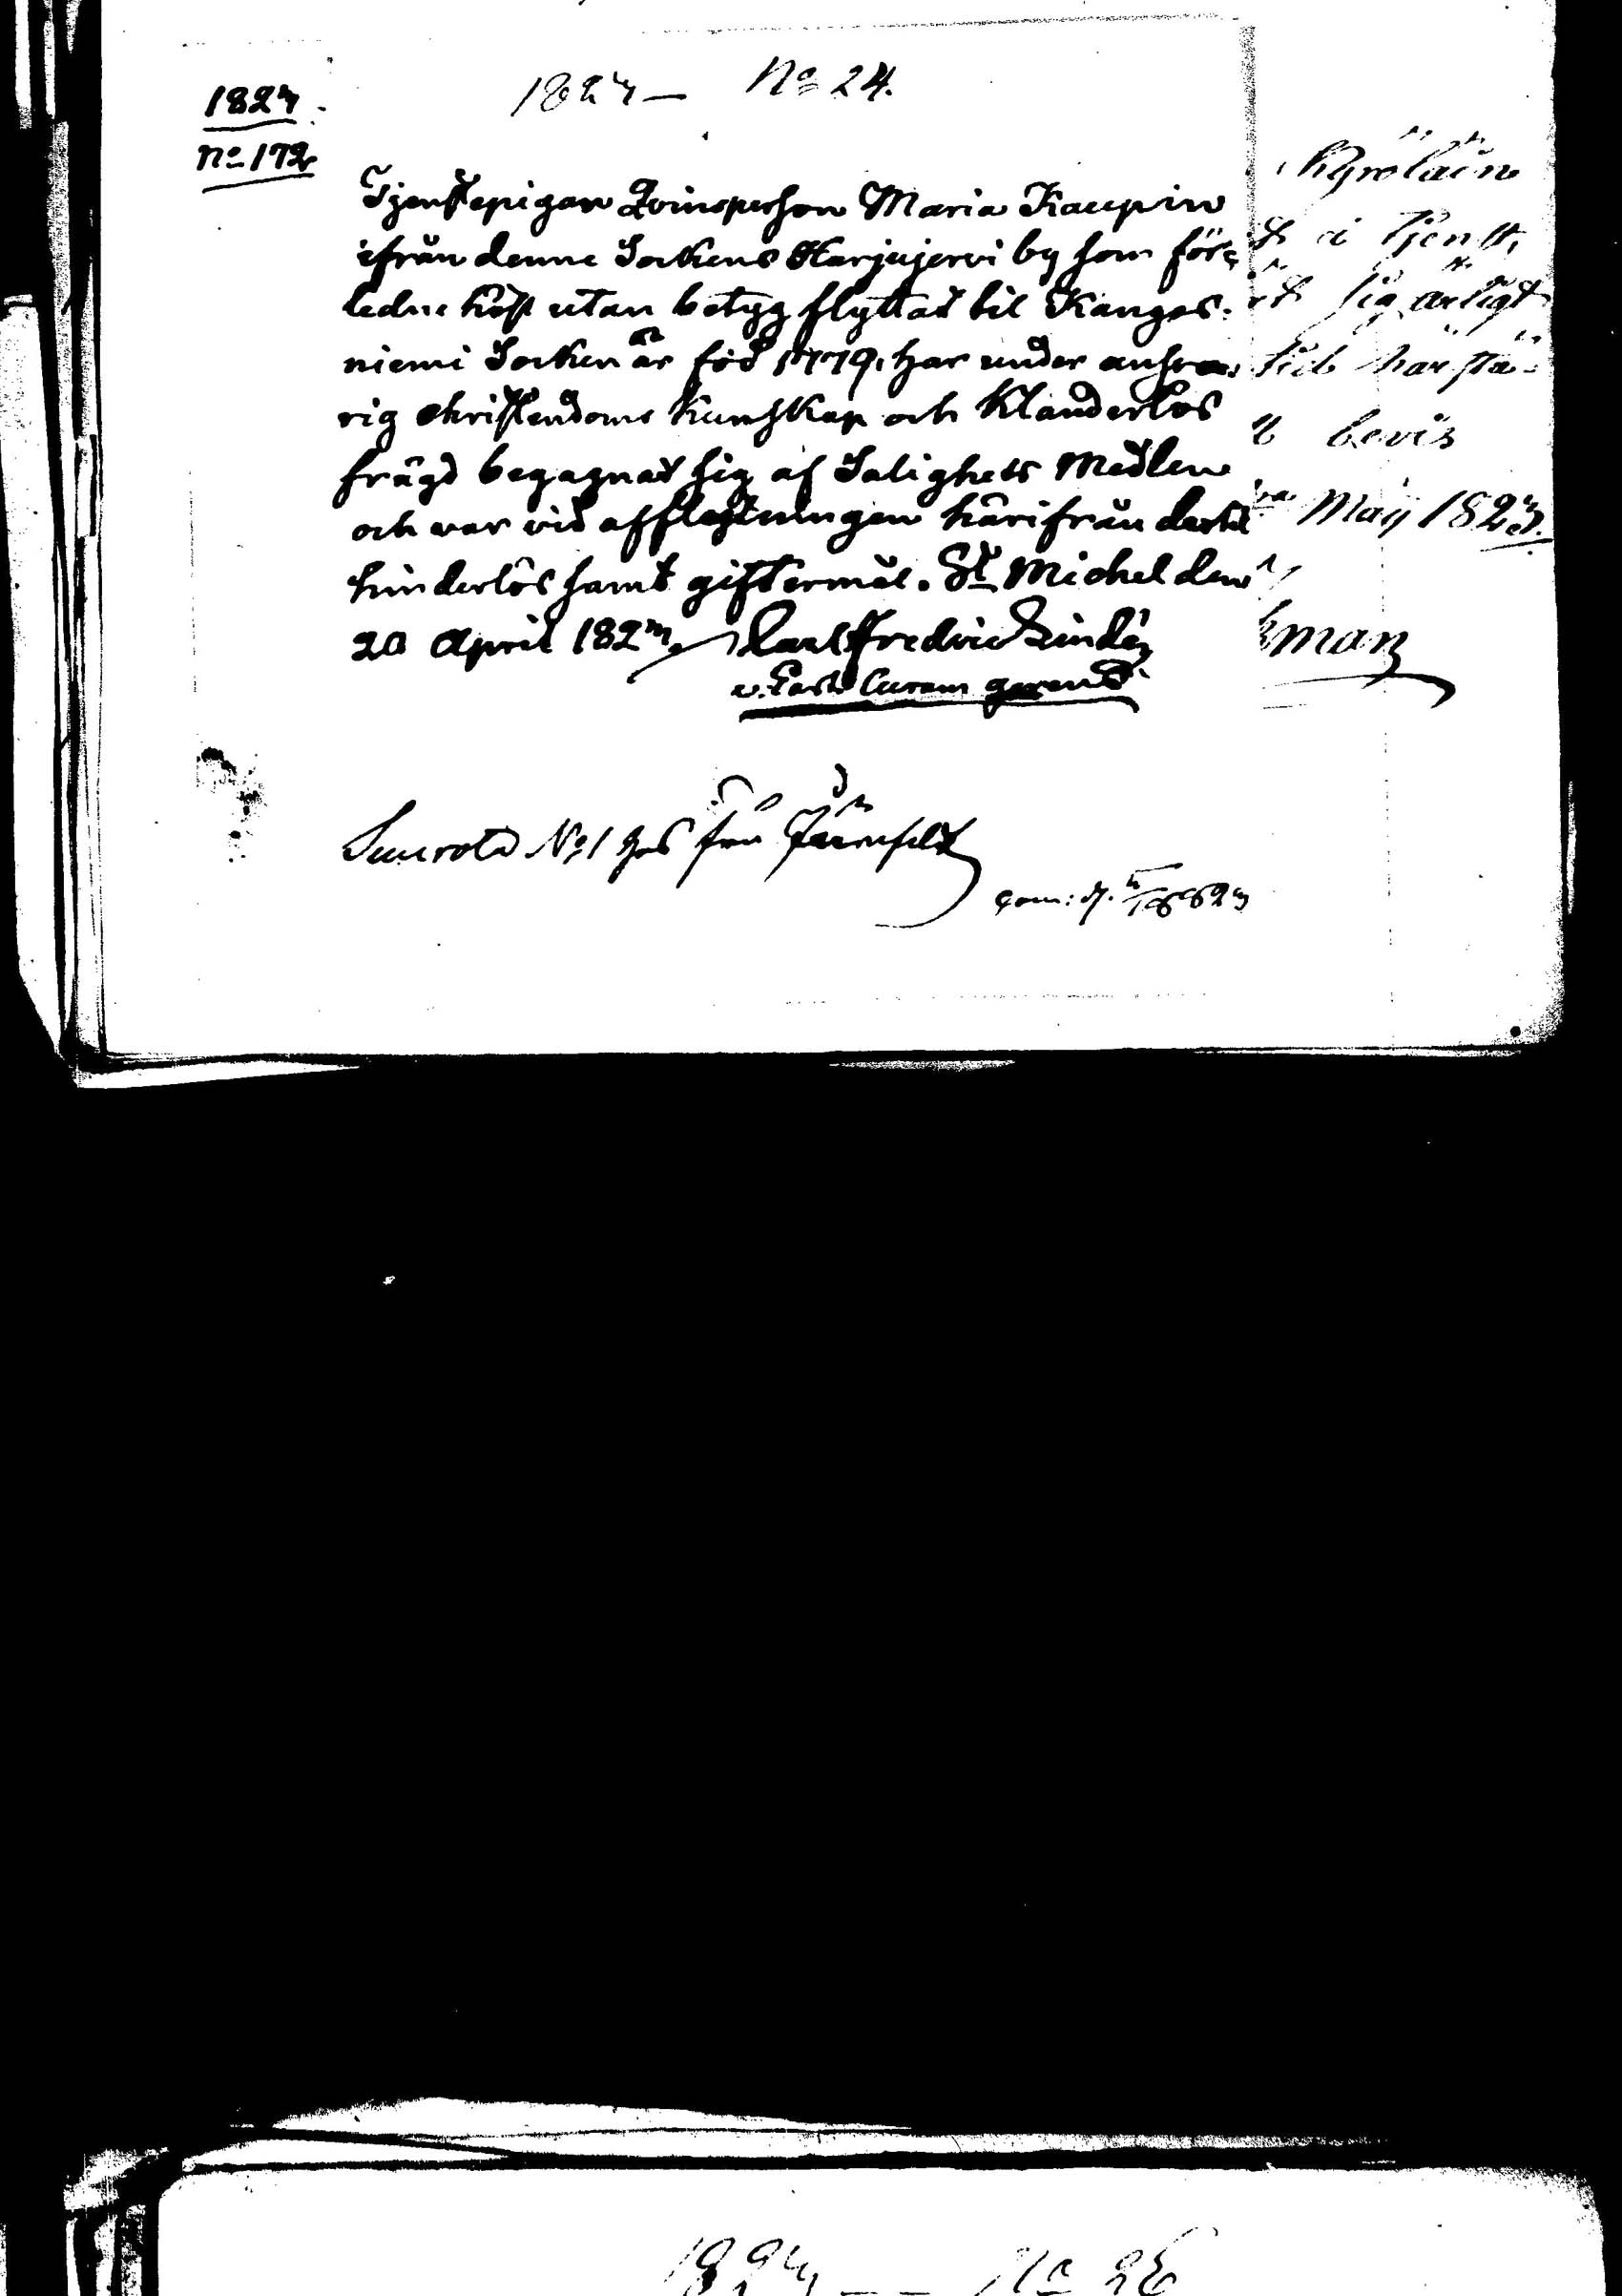 1827
No 172
1827 — No 24.
Tjenstepigan Qvinsperson Maria Kaupin
ifrån denne Sockens Harjujervi by som för
ledne höst utan betyg flyttat til Kangas-
niemi Socken är född 1779, har under ansva-
rig Christendoms Kunskap och Klanderlös
frägd begagnat sig af Salighets Medlen
och var vid afflyttningen härifrån dertil
hinderlös samt giftermål. St Michel den
20 April 1827. Carl Fredric Lindén
v. Past. Curam gerens
No 1 hos fru Järnefelt
Kyröläin
t i tjenst,
t sig ärligt
tid här stä-
t bevis
May 1827.
man
1827 — — No 26